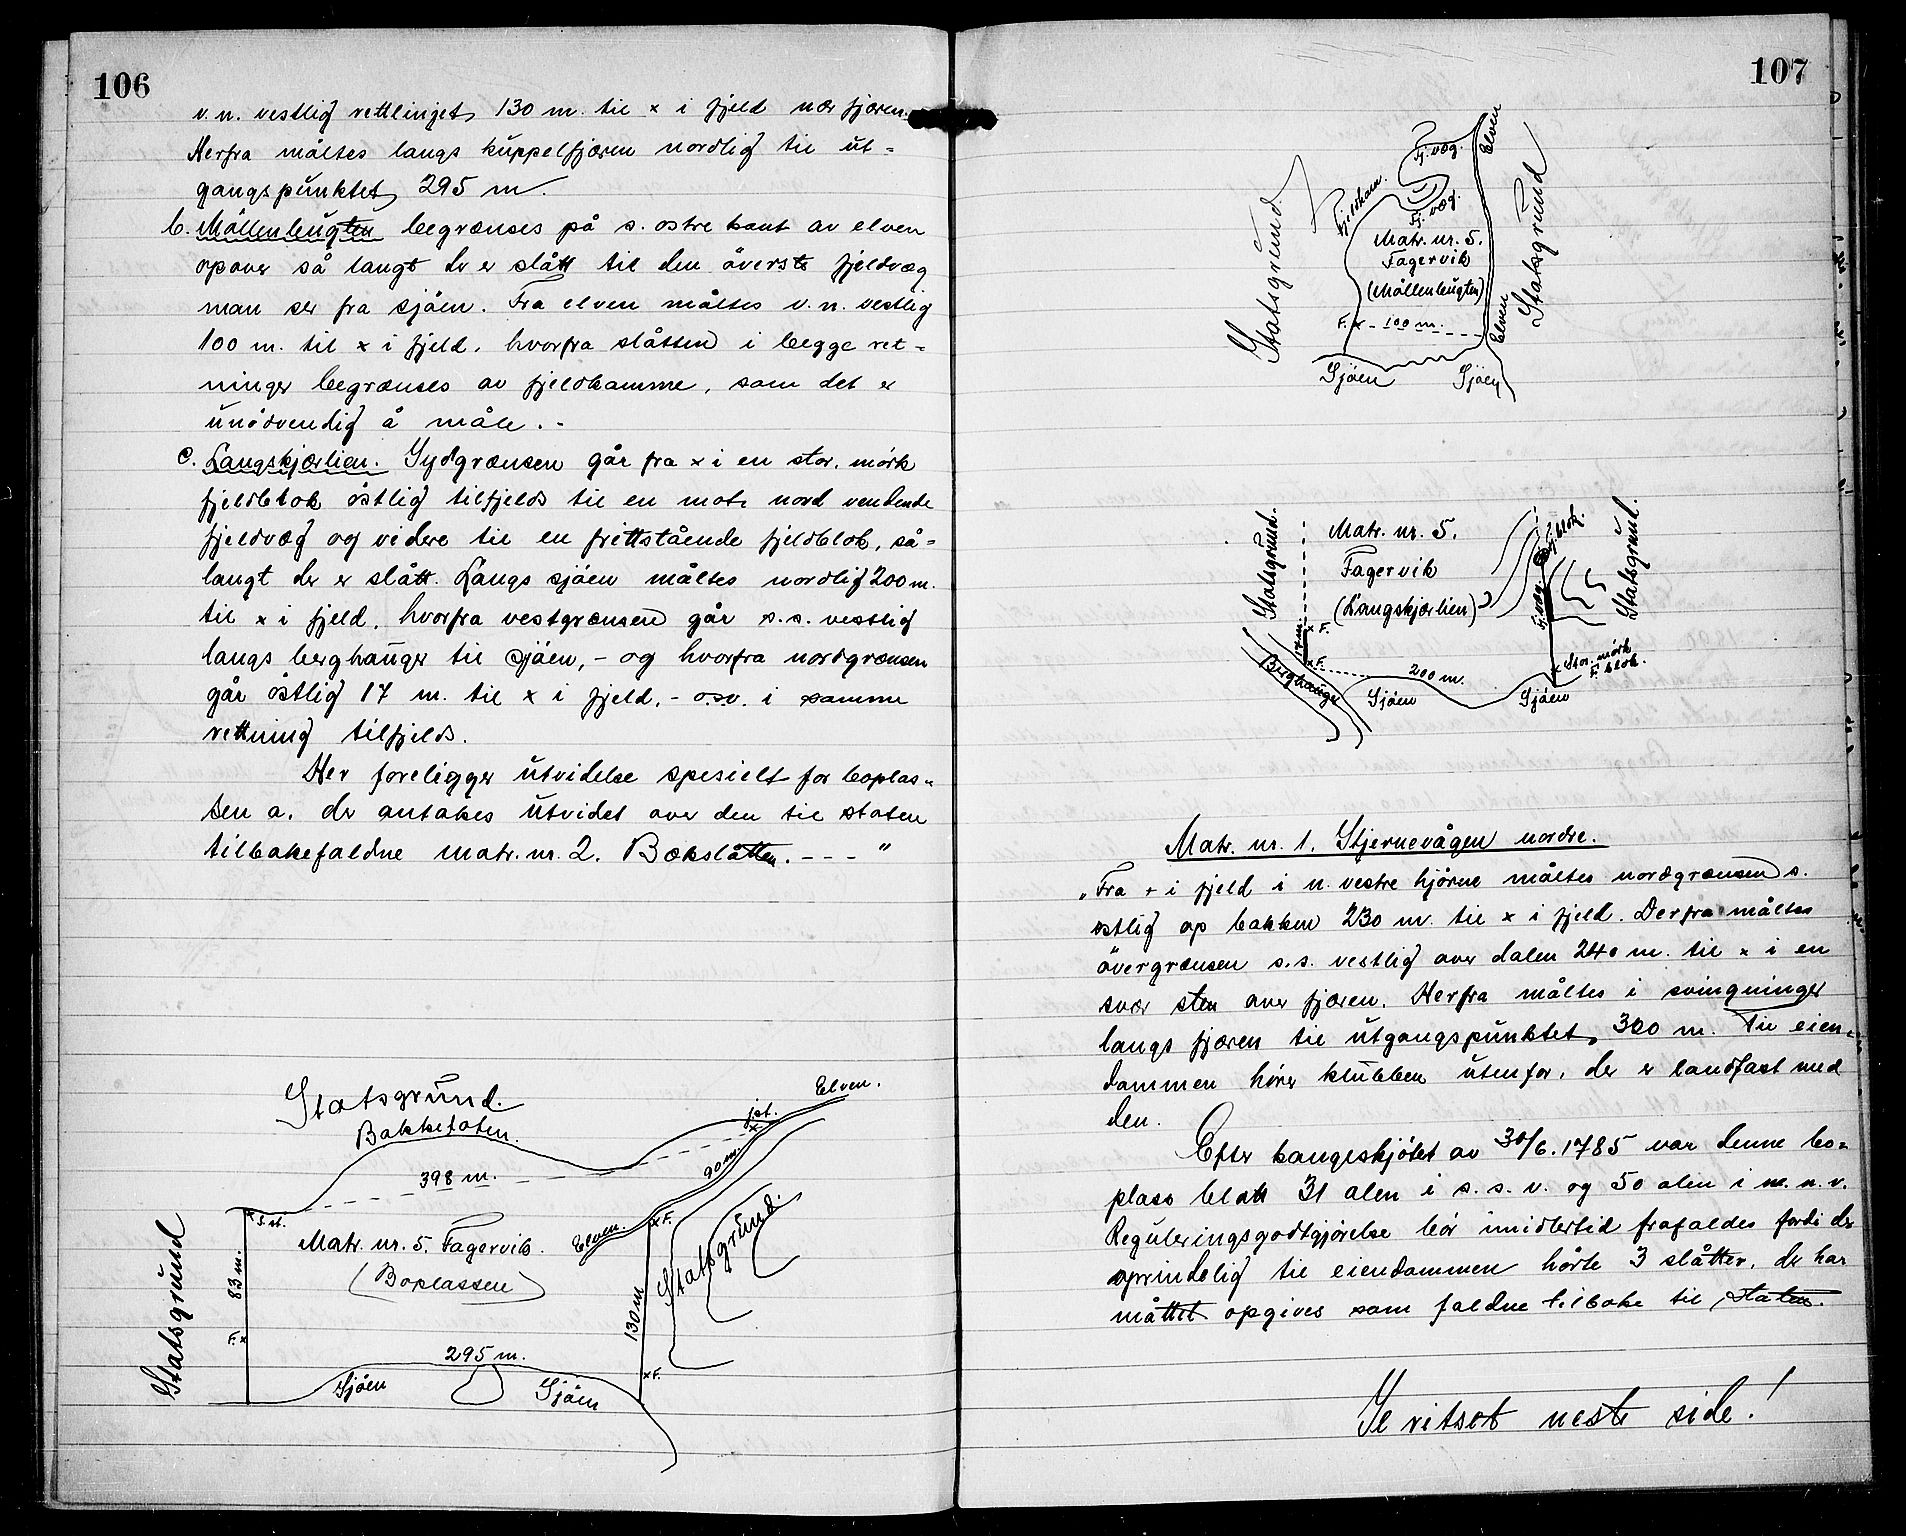 106
v.n. vestlig rettlinjet 130 m. til x i fjeld nær fjæren.
Herfra måltes langs kuppelfjæren nordlig til ut-
gangspunktet 295 m.
b. Möllenbugten begrænses på s. östre kant av elven
opover så langt der er slått til den överste fjeldvæg
man ser fra sjöen. Fra elven måltes v.n. vestlig
100 m. til x i fjeld, hvorfra slåtten i begge ret-
ninger begrænses av fjeldkamme, som det er
unödvendig å måle. -
c. Langskjærlien. Sydgrænsen går fra x i en stor, mörk
fjeldblok östlig tilfjelds til en mot nord vendende
fjeldvæg og videre til en frittstående fjeldblok, så-
langt der er slått. Langs sjöen måltes nordlig 200 m.
til x i fjeld, hvorfra vestgrænsen går s.s. vestlig
langs berghauger til sjöen, - og hvorfra nordgrænsen
går östlig 17 m. til x i fjeld, - o.s.v. i samme
rettning tilfjelds.
Her foreligger utvidelse spesielt for boplas-
sen a. der antakes utvidet over den til staten
tilbakefaldne matr. nr. 2. Bækslåtten. - - - "
Statsgrund.
Bakkefoten.
Elven.
j.st.
398 m.
90 m.
J.st.
Matr. nr. 5. Fagervik.
(Boplassen)
Elven.
x F.
Statsgrund.
Statsgrund
83 m.
F. x
130 m
295 m.
x F.
Sjöen
Sjöen
107
Elven
Fj. væg.
Fjeldkam.
Fj. væg.
Statsgrund.
Statsgrund
Matr. nr. 5.
Fagervik
(Möllenbugten)
F. x - 100 m.
Elven
Sjöen
Sjöen
Statsgrund.
Matr. nr. 5.
Fagervik
(Langskjærlien)
Fj. blok.
Fj. væg.
Statsgrund.
x F.
17 m.
x F.
Berghauger
200 m.
x Stor. mörk
F. blok.
Sjöen
Sjöen
Matr. nr. 1. Stjernevågen nordre.
"Fra + i fjeld i n. vestre hjörne måltes nordgrænsen s.
östlig op bakken 230 m. til x i fjeld. Derfra måltes
övergrænsen s.s. vestlig over dalen 240 m. til x i en
svær sten over fjæren. Herfra måltes i svingninger
langs fjæren til utgangspunktet, 300 m. Til eien-
dommen hörer klubben utenfor, der er landfast med
den.
Efter kongeskjötet av 30/6. 1785 var denne bo-
plass blott 31 alen i s.s.v. og 50 alen i n.n.v.
Reguleringsgodtgjörelse bör imidlertid frafaldes fordi der
oprindelig til eiendommen hörte 3 slåtter, der har
måttet opgives som faldne tilbake til staten.
Se neste side!